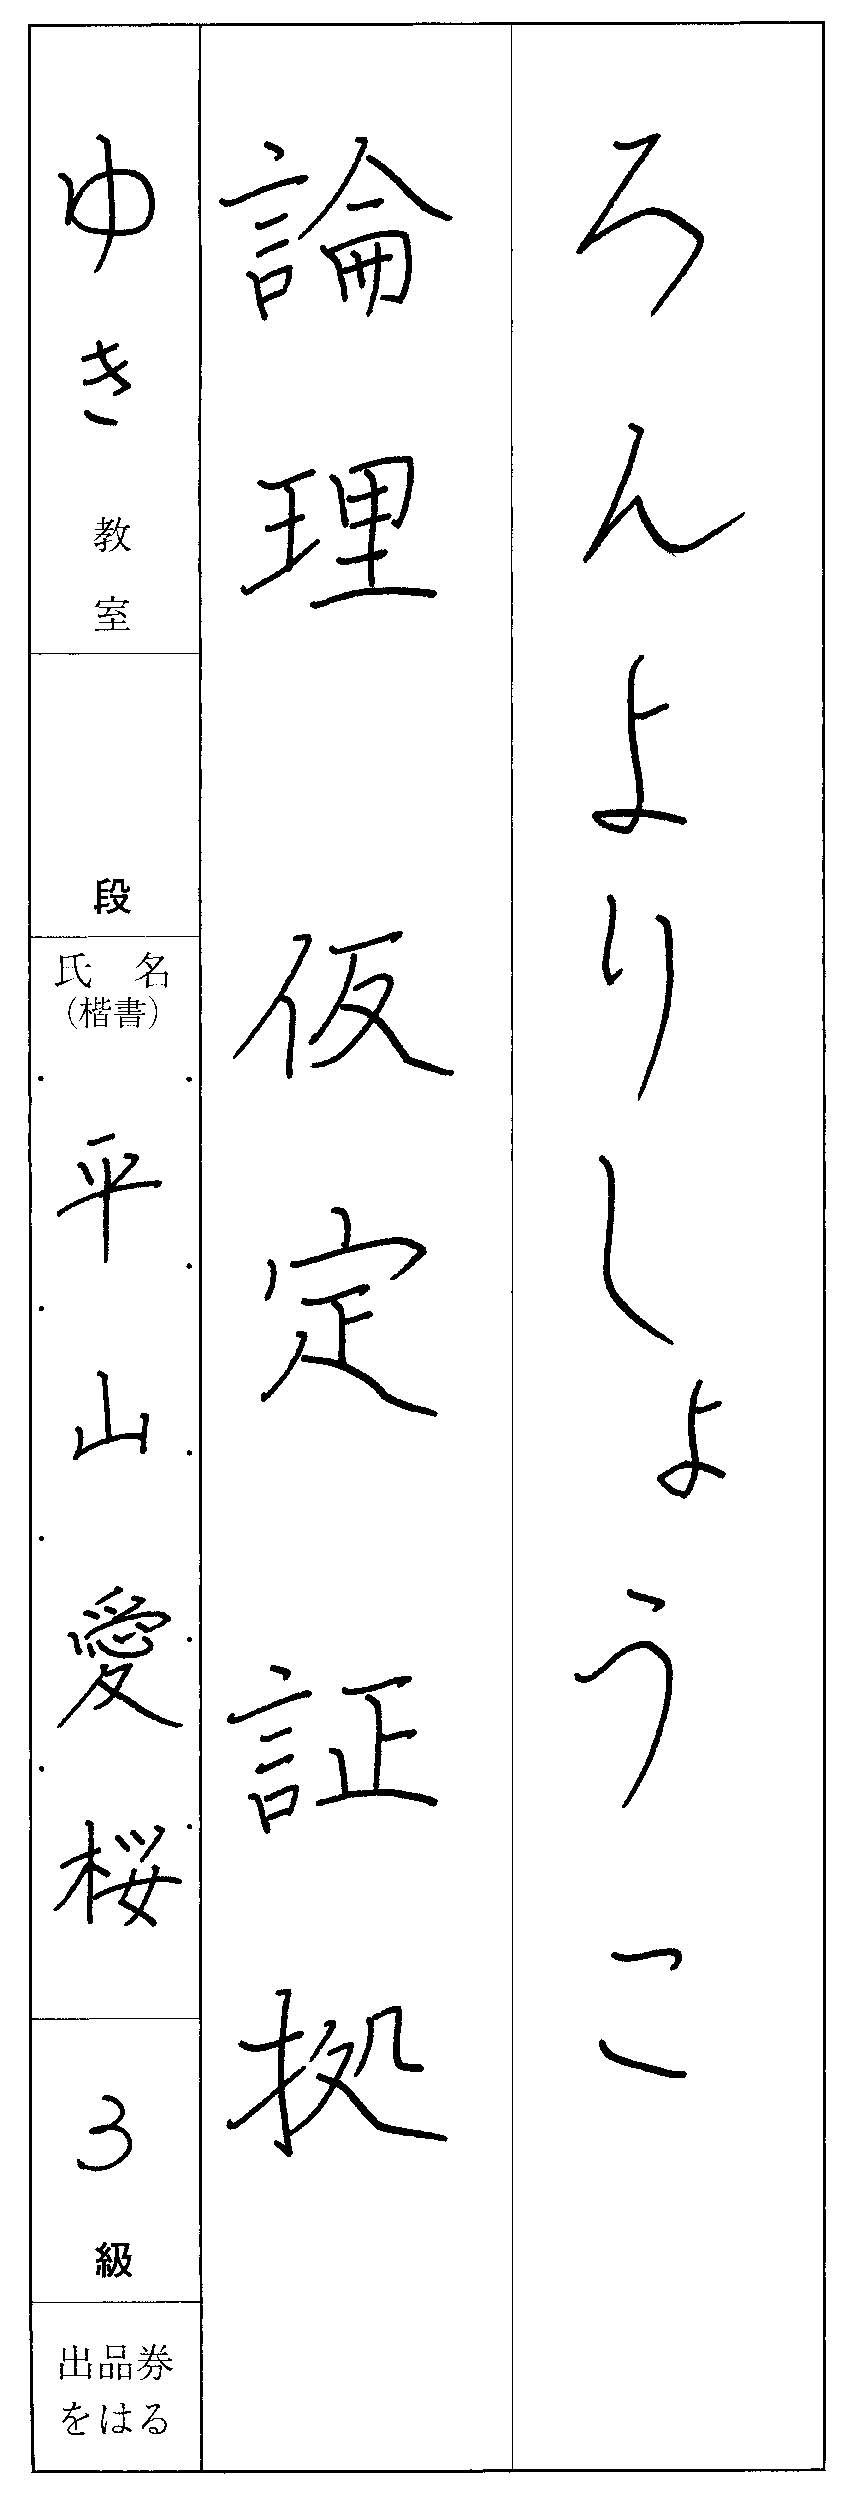 ろんよりしょうこ
論理 仮定 証拠
ゆき教室
段
氏名
(楷書)
平山愛桜
3級
出品券
をはる